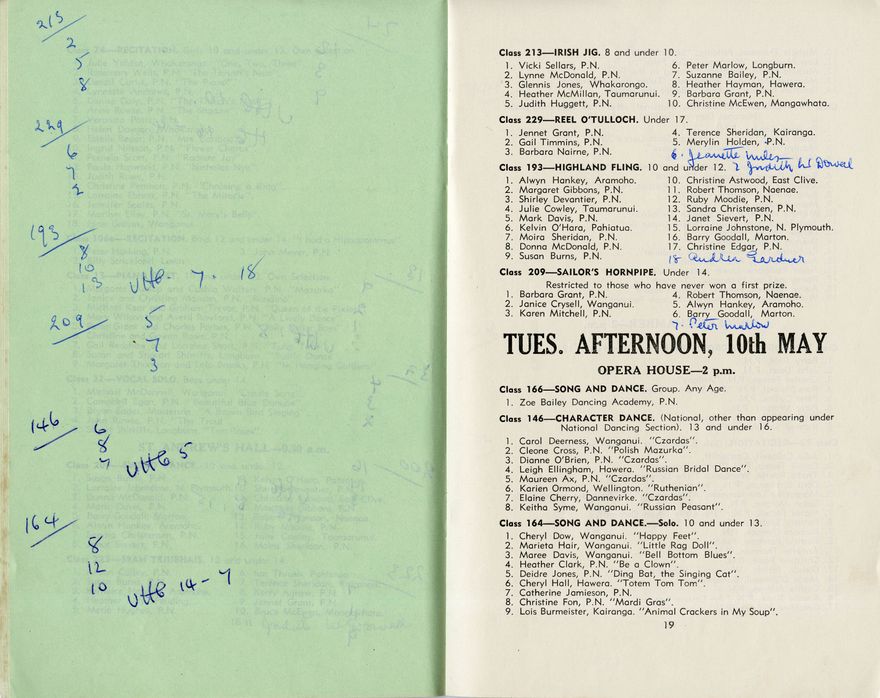 213
2
5
8
229
6
7
2
193
8
10
13 VHC 7. 18
209
5
7
3
146
6
8
7 VHC 5
164
8
12
10 VHC 14-7
ST. ANDREW'S HALL
Class 213—IRISH JIG. 8 and under 10.
1. Vicki Sellars, P.N.
2. Lynne McDonald, P.N.
3. Glennis Jones, Whakarongo.
4. Heather McMillan, Taumarunui.
5. Judith Huggett, P.N.
6. Peter Marlow, Longburn.
7. Suzanne Bailey, P.N.
8. Heather Hayman, Hawera.
9. Barbara Grant, P.N.
10. Christine McEwen, Mangawhata.
Class 229—REEL O'TULLOCH. Under 17.
1. Jennet Grant, P.N.
2. Gail Timmins, P.N.
3. Barbara Nairne, P.N.
4. Terence Sheridan, Kairanga.
5. Merylin Holden, P.N.
6. Jeanette Miles
7 Judith McDowell
Class 193—HIGHLAND FLING. 10 and under 12.
1. Alwyn Hankey, Aramoho.
2. Margaret Gibbons, P.N.
3. Shirley Devantier, P.N.
4. Julie Cowley, Taumarunui.
5. Mark Davis, P.N.
6. Kelvin O'Hara, Pahiatua.
7. Moira Sheridan, P.N.
8. Donna McDonald, P.N.
9. Susan Burns, P.N.
10. Christine Astwood, East Clive.
11. Robert Thomson, Naenae.
12. Ruby Moodie, P.N.
13. Sandra Christensen, P.N.
14. Janet Sievert, P.N.
15. Lorraine Johnstone, N. Plymouth.
16. Barry Goodall, Marton.
17. Christine Edgar, P.N.
18 Gardner
Class 209—SAILOR'S HORNPIPE. Under 14.
Restricted to those who have never won a first prize.
1. Barbara Grant, P.N.
2. Janice Crysell, Wanganui.
3. Karen Mitchell, P.N.
4. Robert Thomson, Naenae.
5. Alwyn Hankey, Aramoho.
6. Barry Goodall, Marton.
7. Peter Marlow
TUES. AFTERNOON, 10th MAY
OPERA HOUSE—2 p.m.
Class 166—SONG AND DANCE. Group. Any Age.
1. Zoe Bailey Dancing Academy, P.N.
Class 146—CHARACTER DANCE. (National, other than appearing under
National Dancing Section). 13 and under 16.
1. Carol Deerness, Wanganui. "Czardas".
2. Cleone Cross, P.N. "Polish Mazurka".
3. Dianne O'Brien, P.N. "Czardas".
4. Leigh Ellingham, Hawera. "Russian Bridal Dance".
5. Maureen Ax, P.N. "Czardas".
6. Karien Ormond, Wellington. "Ruthenian".
7. Elaine Cherry, Dannevirke. "Czardas".
8. Keitha Syme, Wanganui. "Russian Peasant".
Class 164—SONG AND DANCE.—Solo. 10 and under 13.
1. Cheryl Dow, Wanganui. "Happy Feet".
2. Marieta Hair, Wanganui. "Little Rag Doll".
3. Maree Davis, Wanganui. "Bell Bottom Blues".
4. Heather Clark, P.N. "Be a Clown".
5. Deidre Jones, P.N. "Ding Bat, the Singing Cat".
6. Cheryl Hall, Hawera. "Totem Tom Tom".
7. Catherine Jamieson, P.N.
8. Christine Fon, P.N. "Mardi Gras".
9. Lois Burmeister, Kairanga. "Animal Crackers in My Soup".
19